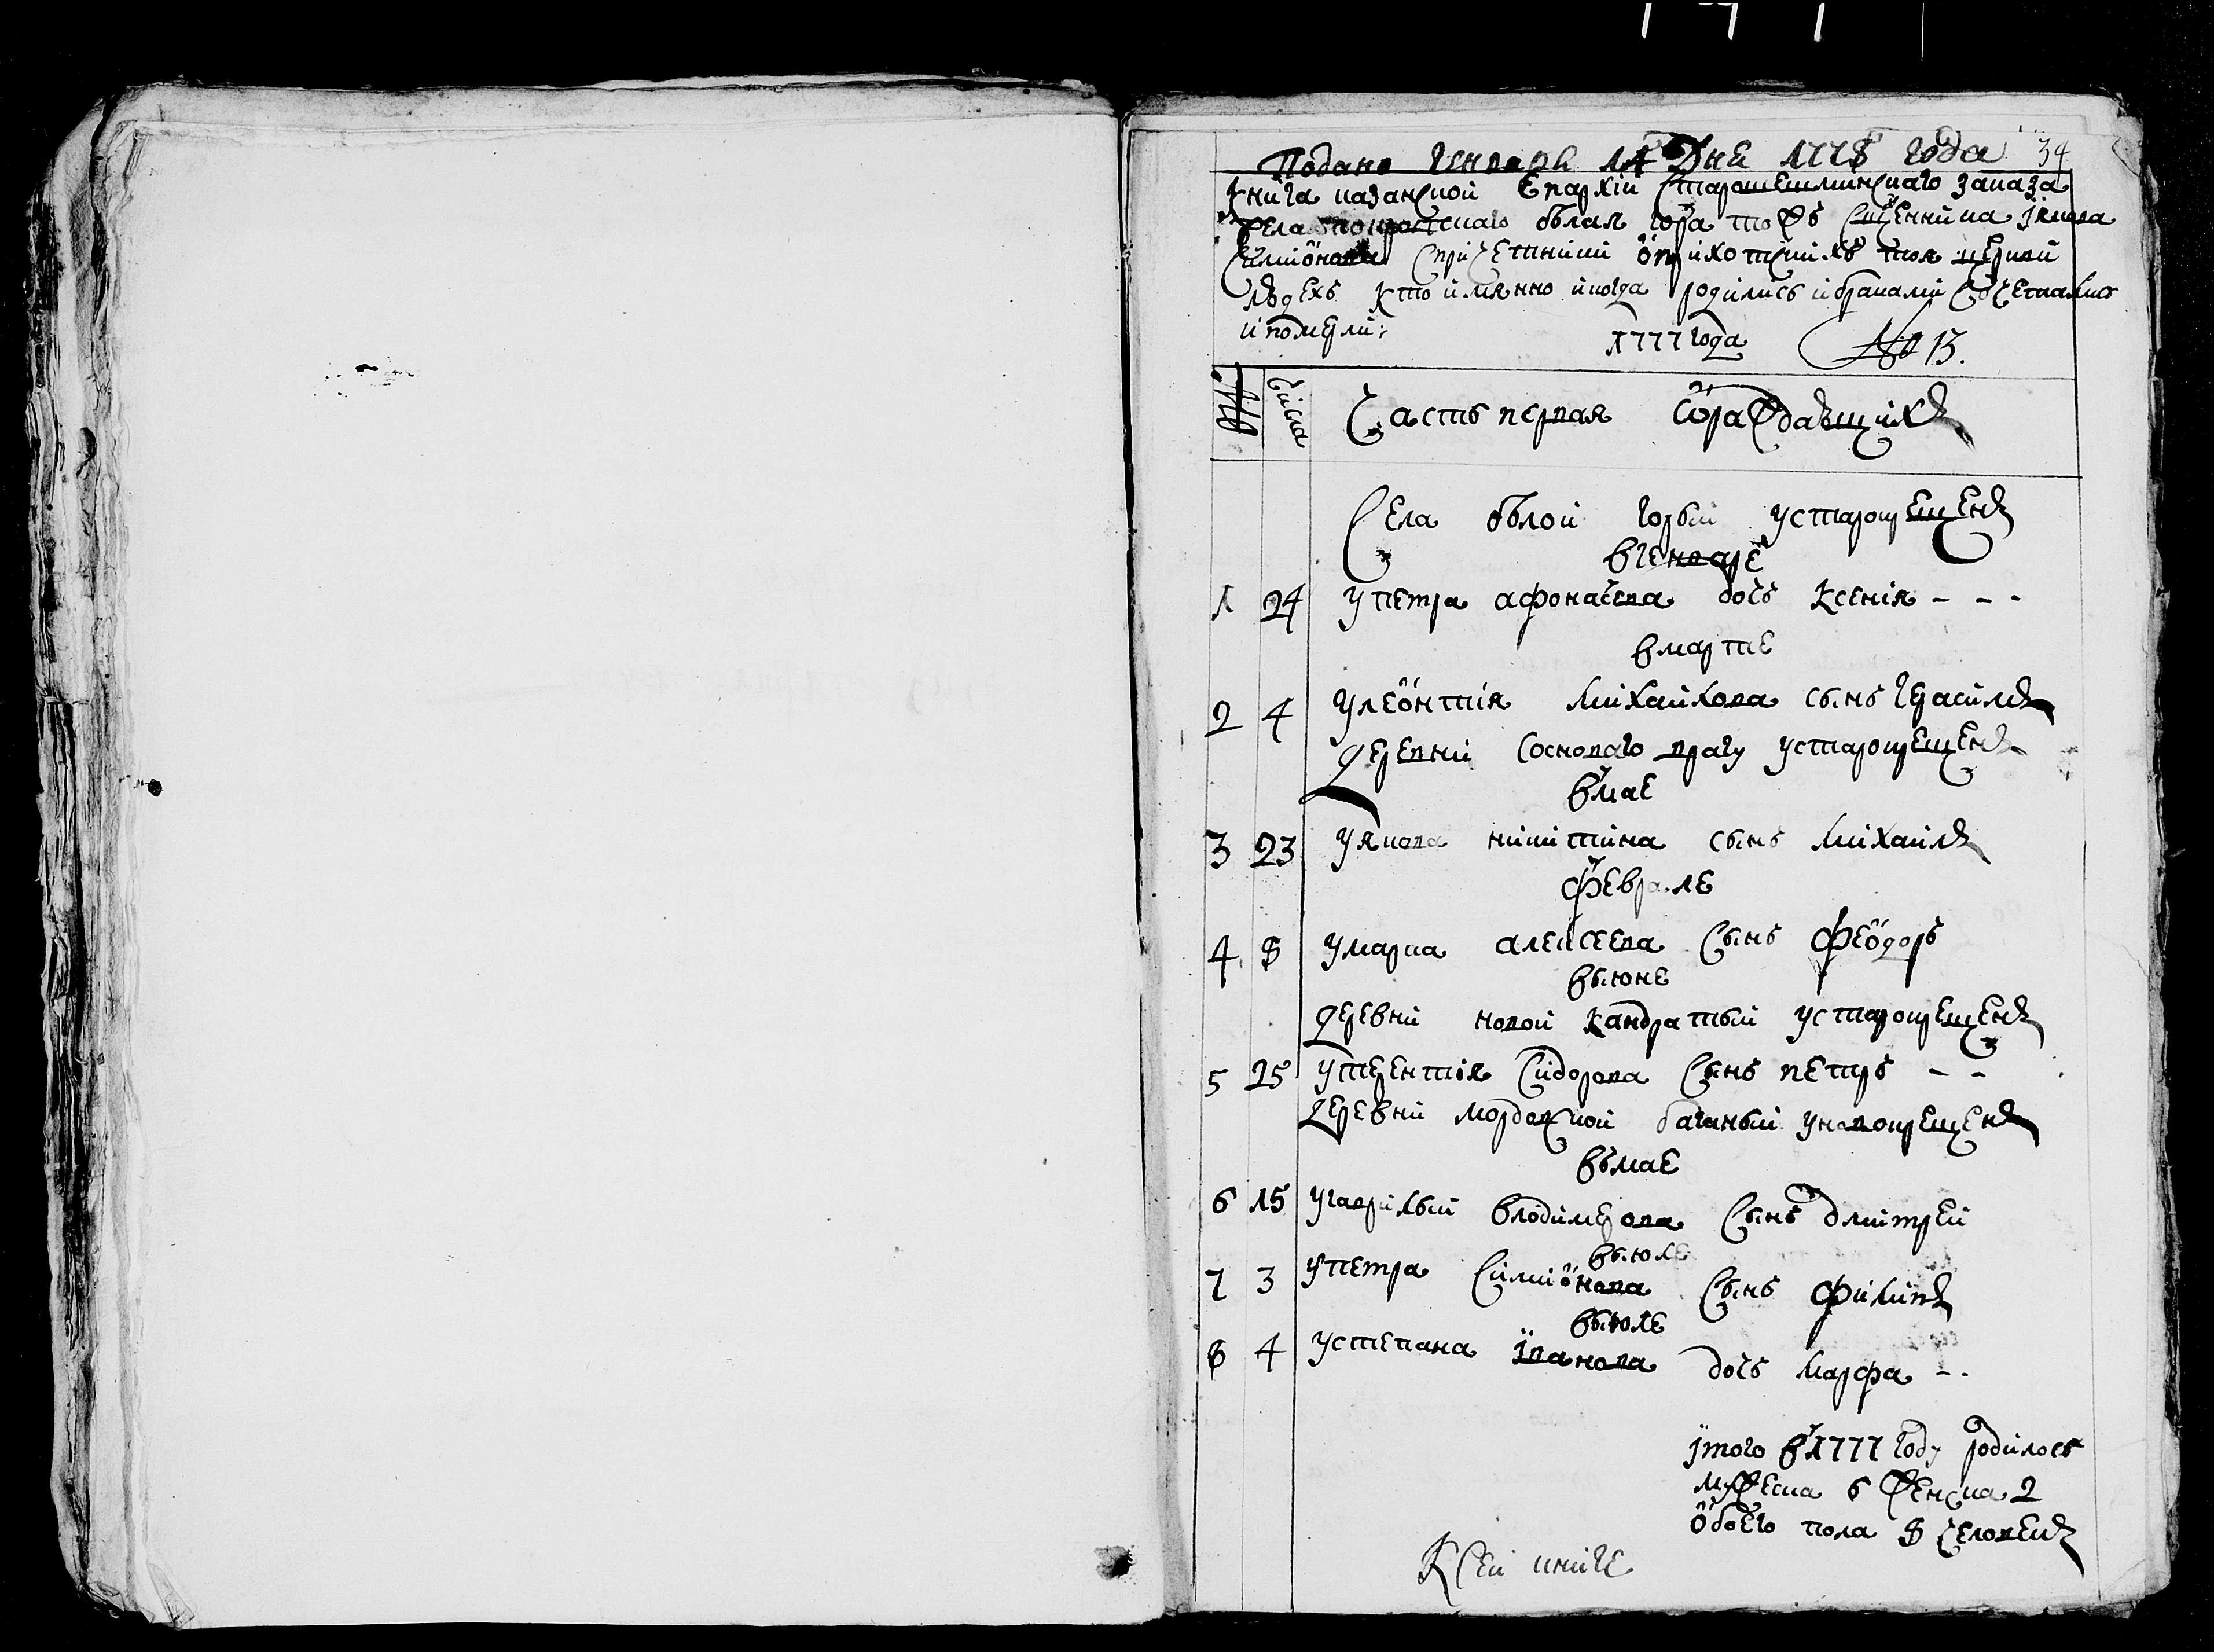 Подано Генваря 14 Дня 1778 года 34
Книга казанской Епархии Старошешминскаго заказа
села Покровскаго белая гора тож священника Якова
Симионова спричетники оприхотских тоя церкви
людех кто имянно икогда родились ибраками сочетались
ипомерли:
1777 года № 13.
№ числа Часть первая ораждавшихъ
Села белой горы устарокрещенъ
вгенваре
1 24 упетра афонасева дочь Ксения - - -
вмарте
2 4 улеонтия михайлова сынъ герасимъ
деревни Сосноваго врагу устарокрещенъ
вмае
3 23 уякова никитина сынъ михаилъ
Феврале
4 8 умарка алексеева сынъ Феодоръ
выюне
деревни новой Кандраты устарокрещенъ
5 25 утерентия Сидорова сынъ петръ - -
деревни мордовской баганы уновокрещенъ
вмае
6 15 угаврилы влодимерова сынъ дмитрей
выюле
7 3 упетра Симионова сынъ филипъ
выюле
8 4 устепана иванова дочь марфа - -
итого в 1777 году родилось
мужеска 6 женска 2
обоего пола 8 человекъ
К сей книге